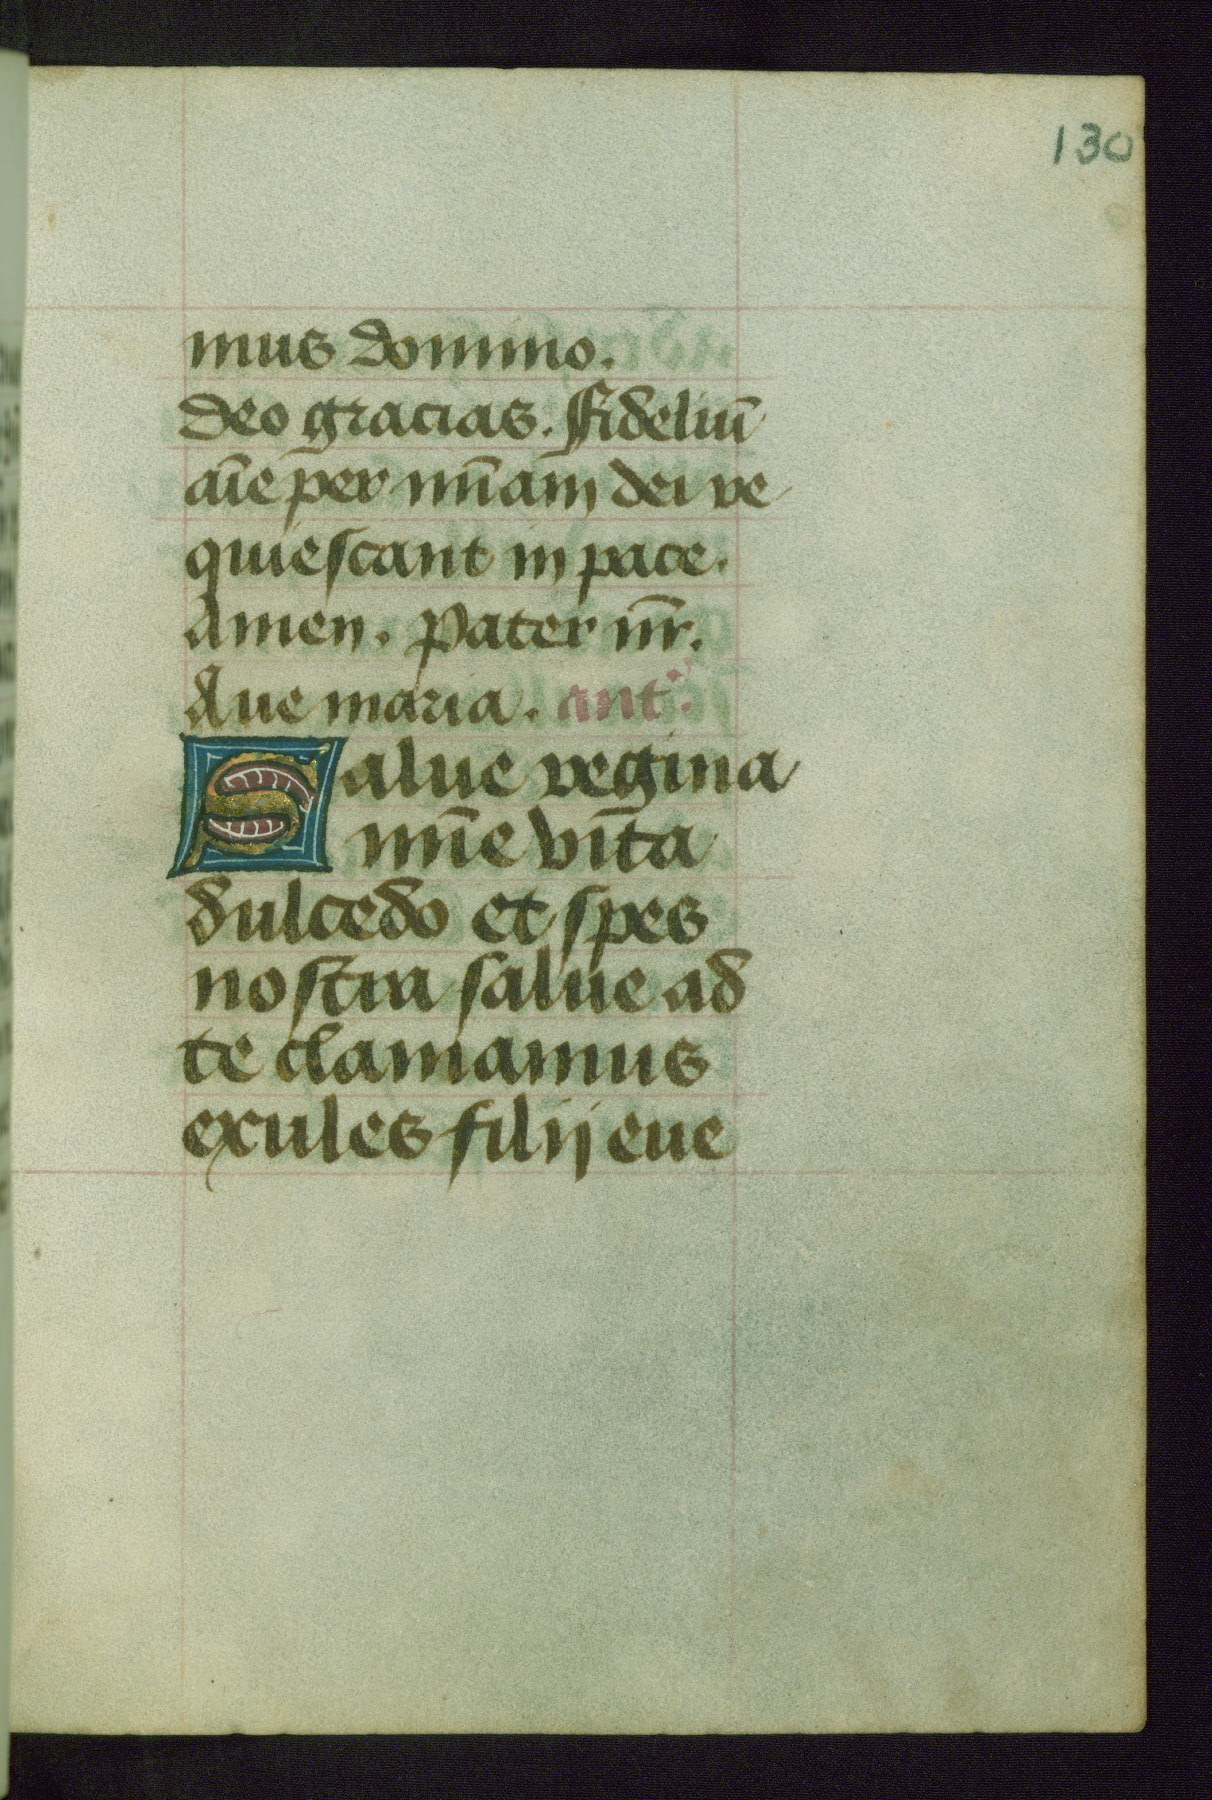 130
mus domino.
deo gracias. Fideliū
aīe per mīam dei re
quiescant in pace.
Amen. Pater nr̄.
Aue maria. ant:
Salue regina
mīe vīta
dulcedo et spes
nostra salue ad
te clamamus
exules filij eue